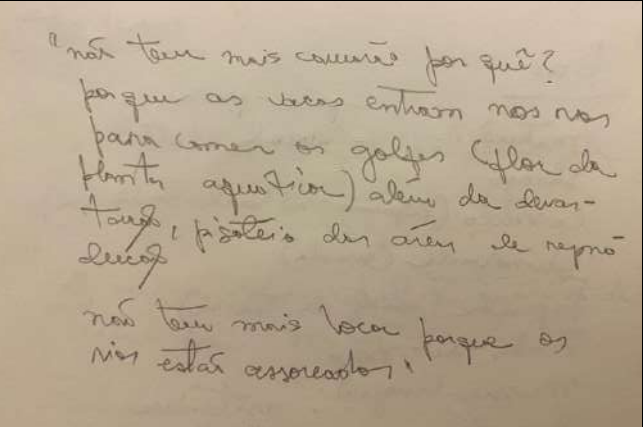 "não tem mais camarão por quê?
porque as vacas entram nos rios
para comer os golfes (flor da
planta aquática) além da devas-
tação, pisoteio das áreas de repro
dução
não tem mais loca porque os
rios estão assoreados,